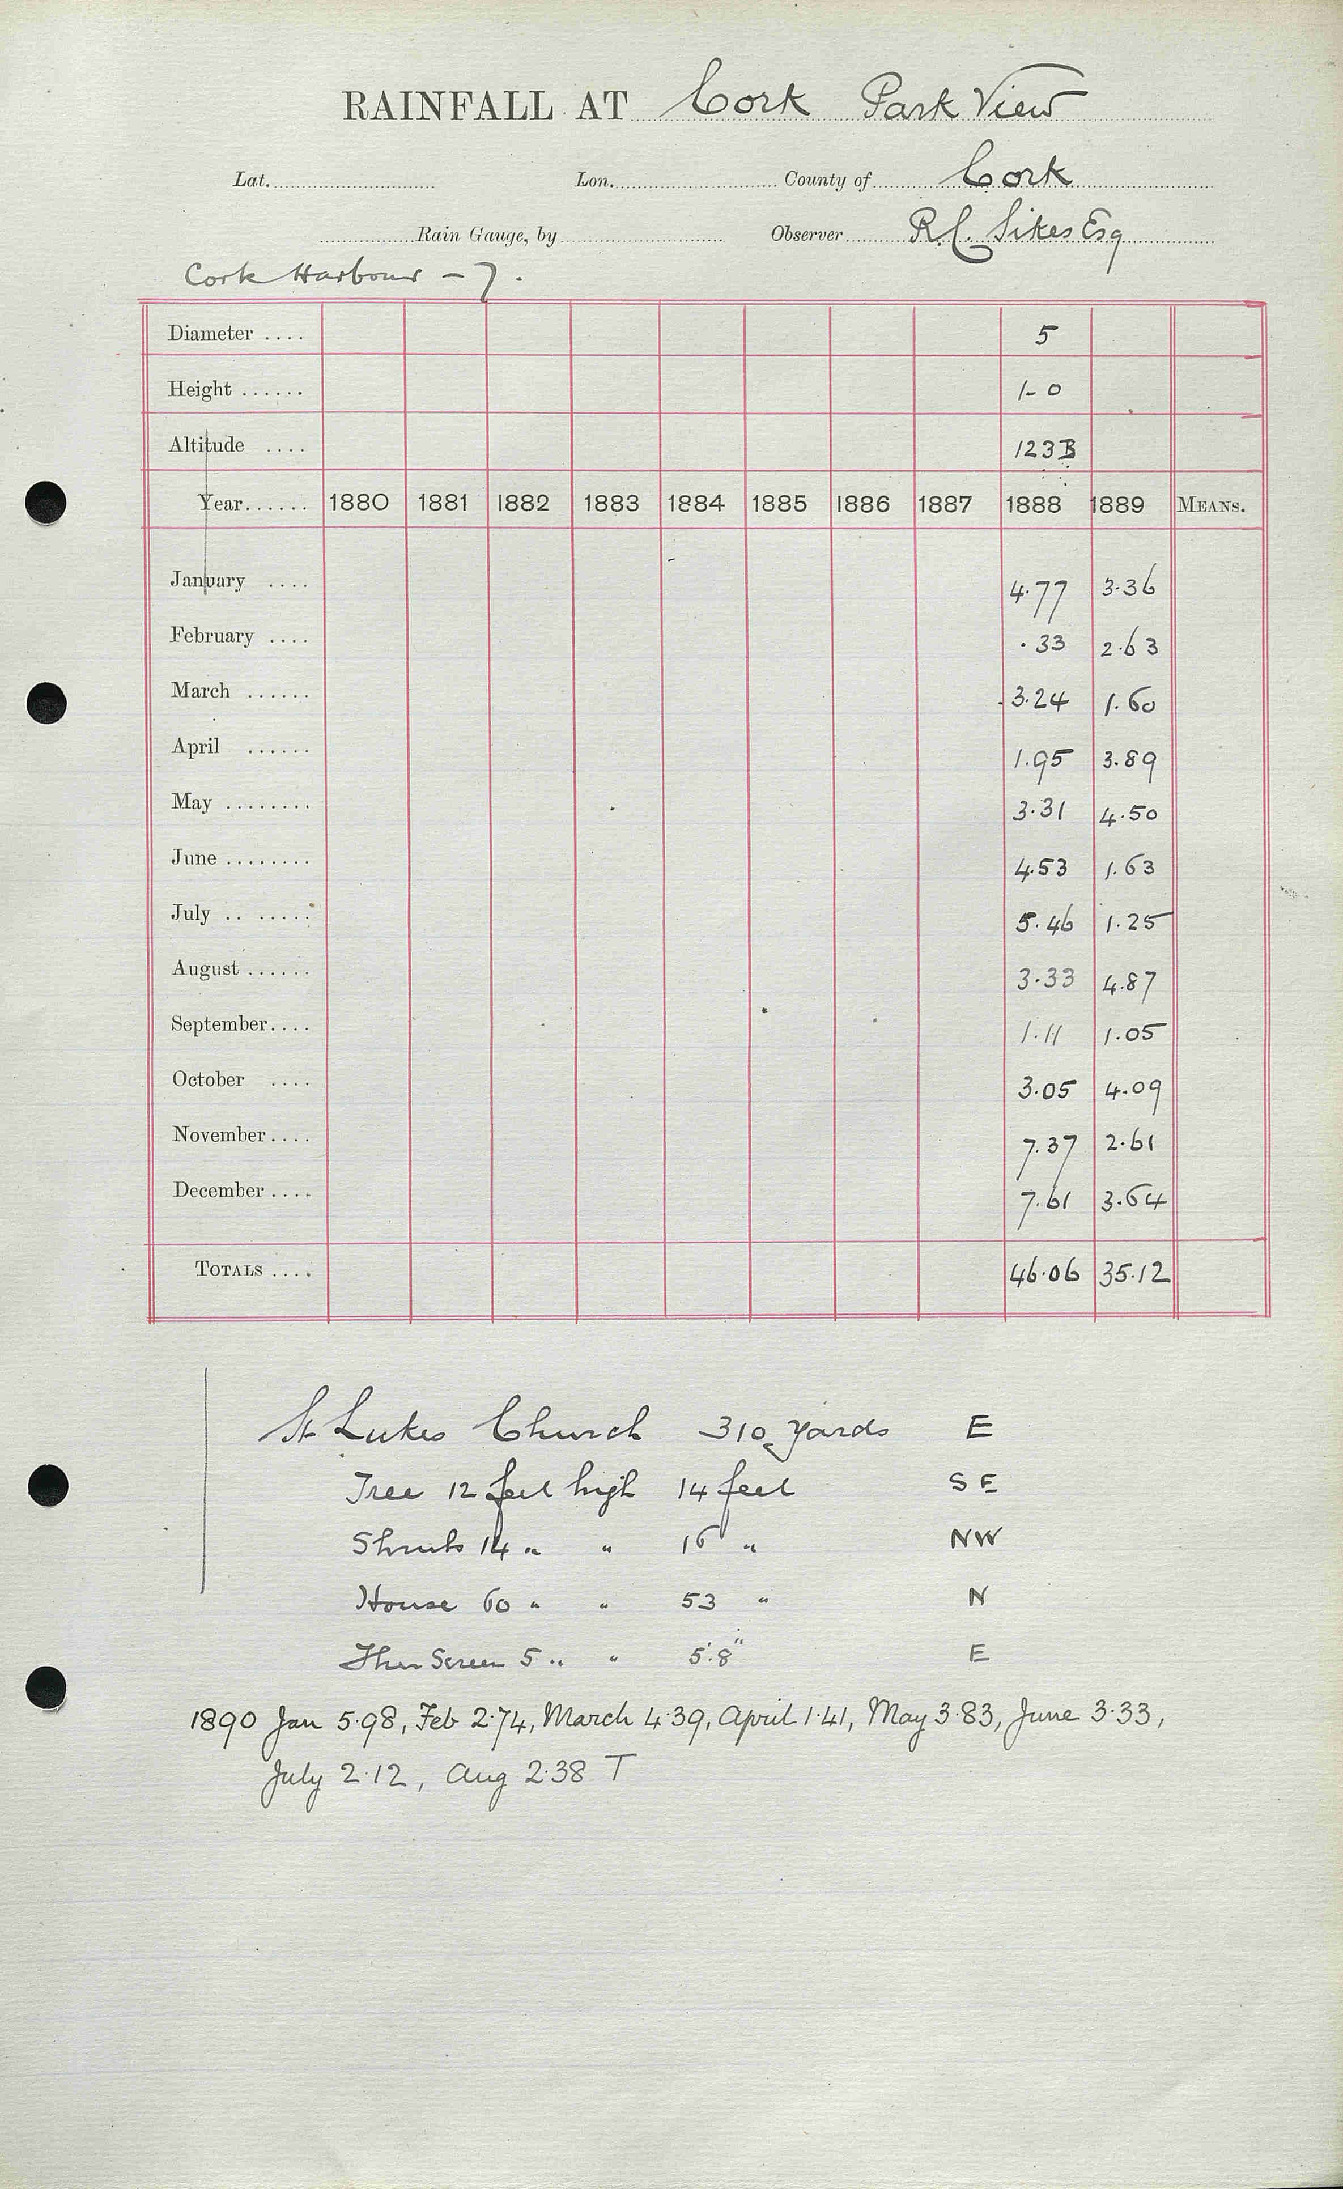 RAINFALL AT Cork Park View
Lat. Lon. County of Cork
Rain Gauge, by Observer R.C. Sikes Esq
Cork Harbour - 7.
Diameter .... 5
Height ...... 1-0
Altitude .... 123 B
Year...... 1880 1881 1882 1883 1884 1885 1886 1887 1888 1889 MEANS.
January .... 4.77 3.36
February .... .33 2.63
March ...... 3.24 1.60
April ...... 1.95 3.89
May ........ 3.31 4.50
June ........ 4.53 1.63
July .. ..... 5.46 1.25
August ...... 3.33 4.87
September.... 1.11 1.05
October .... 3.05 4.09
November.... 7.37 2.61
December.... 7.61 3.64
TOTALS .... 46.06 35.12
St Lukes Church 310 yards E
Tree 12 feet high 14 feet SE
Shrubs 14 " " 16 " NW
House 60 " " 53 " N
Ther Screen 5 " " 5.8" E
1890 Jan 5.98, Feb 2.74, March 4.39, April 1.41, May 3.83, June 3.33,
July 2.12, Aug 2.38 T